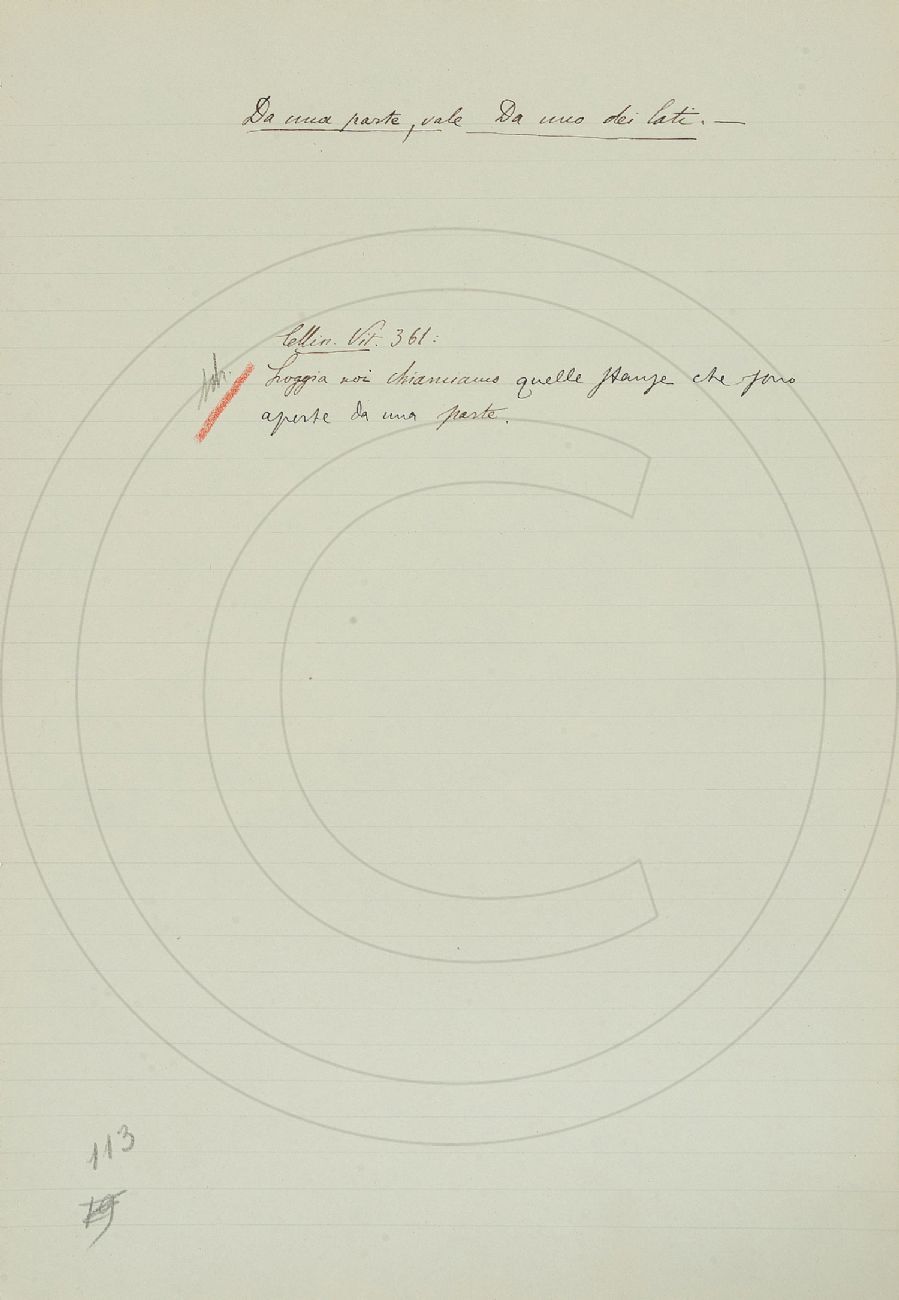 Da una parte, vale Da uno dei lati. —
Cellin. Vit. 361:
Loggia noi chiamiamo quelle stanze che sono
aperte da una parte.
113